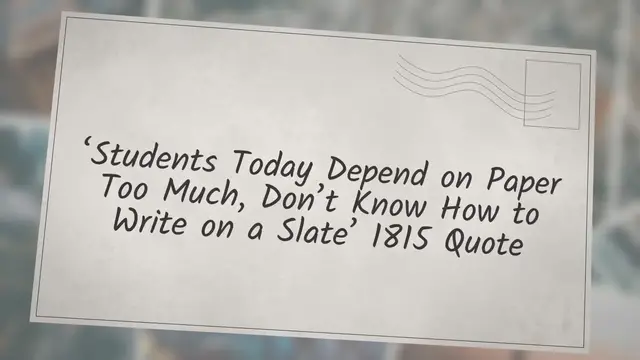 ‘Students Today Depend on Paper
Too Much, Don’t Know How to
Write on a Slate’ 1815 Quote